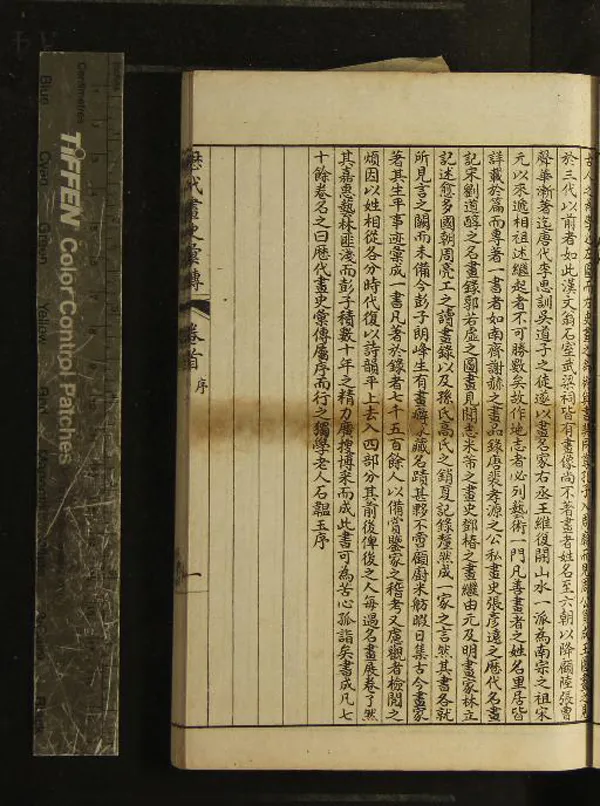 於三代以前者如此漢文翁石室武梁祠皆有畫像尚不著畫者姓名至六朝以降顧陸張曹
聲華漸著迄唐代李思訓吳道子之徒遂以畫名家右丞王維復開山水一派為南宗之祖宋
元以來遞相祖述繼起者不可勝數矣故作地志者必列藝術一門凡善畫者之姓名里居皆
詳載於篇而專著一書者如南齊謝赫之畫品錄唐裴孝源之公私畫史張彥遠之歷代名畫
記宋劉道醇之名畫錄郭若虛之圖畫見聞志米芾之畫史鄧椿之畫繼由元及明畫家林立
記述愈多國朝周亮工之讀畫錄以及孫氏高氏之銷夏記錄釐然成一家之言然其書各就
所見言之闕而未備今彭子朗峰生有畫癖家藏名蹟甚夥不啻顧廚米舫暇日集古今畫家
著其生平事迹彙成一書凡著於錄者七千五百餘人以備賞鑒家之稽考又慮觀者檢閱之
煩因以姓相從各分時代復以詩韻平上去入四部分其前後俾後之人每遇名畫展卷了然
其嘉惠藝林匪淺而彭子積數十年之精力廣搜博采而成此書可為苦心孤詣矣書成凡七
十餘卷名之曰歷代畫史彙傳屬序而行之獨學老人石韞玉序
歷代畫史彙傳
卷首
序
一
TIFFEN Color Control Patches
Centimetres
Blue
Cyan
Green
Yellow
Red